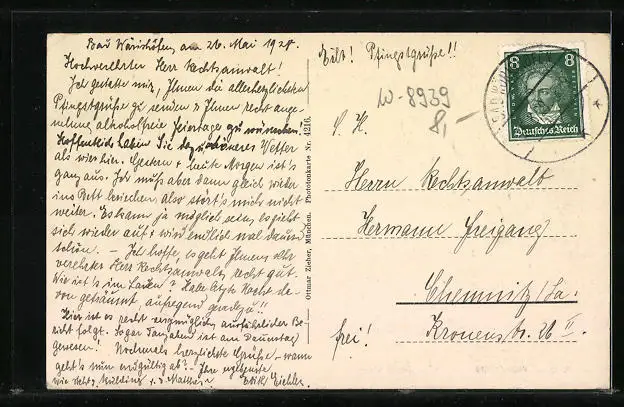 Bad Wörishofen, am 26. Mai 1928.
Hochverehrter Herr Rechtsanwalt!
Ich gestatte mir, Ihnen die allerherzlichsten
Pfingstgrüße zu senden & Ihnen recht ange-
nehme alkoholfreie Feiertage zu wünschen.
Hoffentlich haben Sie da schöneres Wetter
als wir hier. Gestern & heute Morgen ist's
ganz aus. Ich muß aber dann gleich wieder
ins Bett kriechen also stört's mich nicht
weiter. Es kann ja möglich sein, es gießt
sich wieder auf & wird endlich mal dauernd
schön. – Ich hoffe, es geht Ihnen sehr
verehrter Herr Rechtsanwalt, recht gut.
Wie ist's im Laden? Habe letzte Nacht da-
von geträumt, aufregend geradezu!!
Hier ist es recht vergnüglich, ausführlicher Be-
richt folgt. Sogar Tanztee ist am Dienstag
gewesen! Nochmals herzlichste Grüße – wann
geht's nun endgültig ab? – Ihre ergebenste
Eichler
Ottmar Zieher, München. Photodonkarte Nr. 4216.
Eilt! Pfingstgrüße!!
W-8939
8,–
8 8
Deutsches Reich
S. H.
Herrn Rechtsanwalt
Hermann Freigang
Chemnitz/Sa.
Kronenstr. 26 II.
frei!